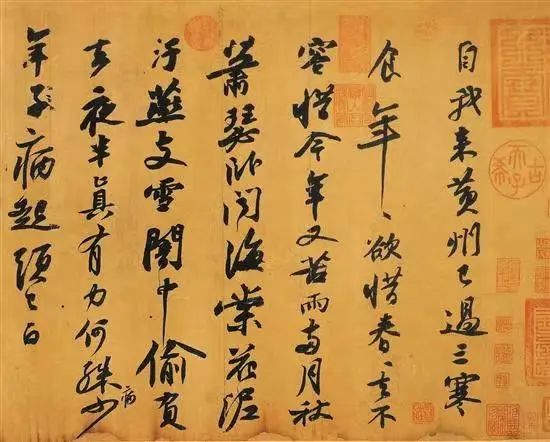 自我來黃州已過三寒
食年々欲惜春々去不
容惜今年又苦雨兩月秋
蕭瑟臥聞海棠花泥
汙燕支雪闇中偷負
去夜半眞有力何殊少
病
年子病起頭已白
古希天子